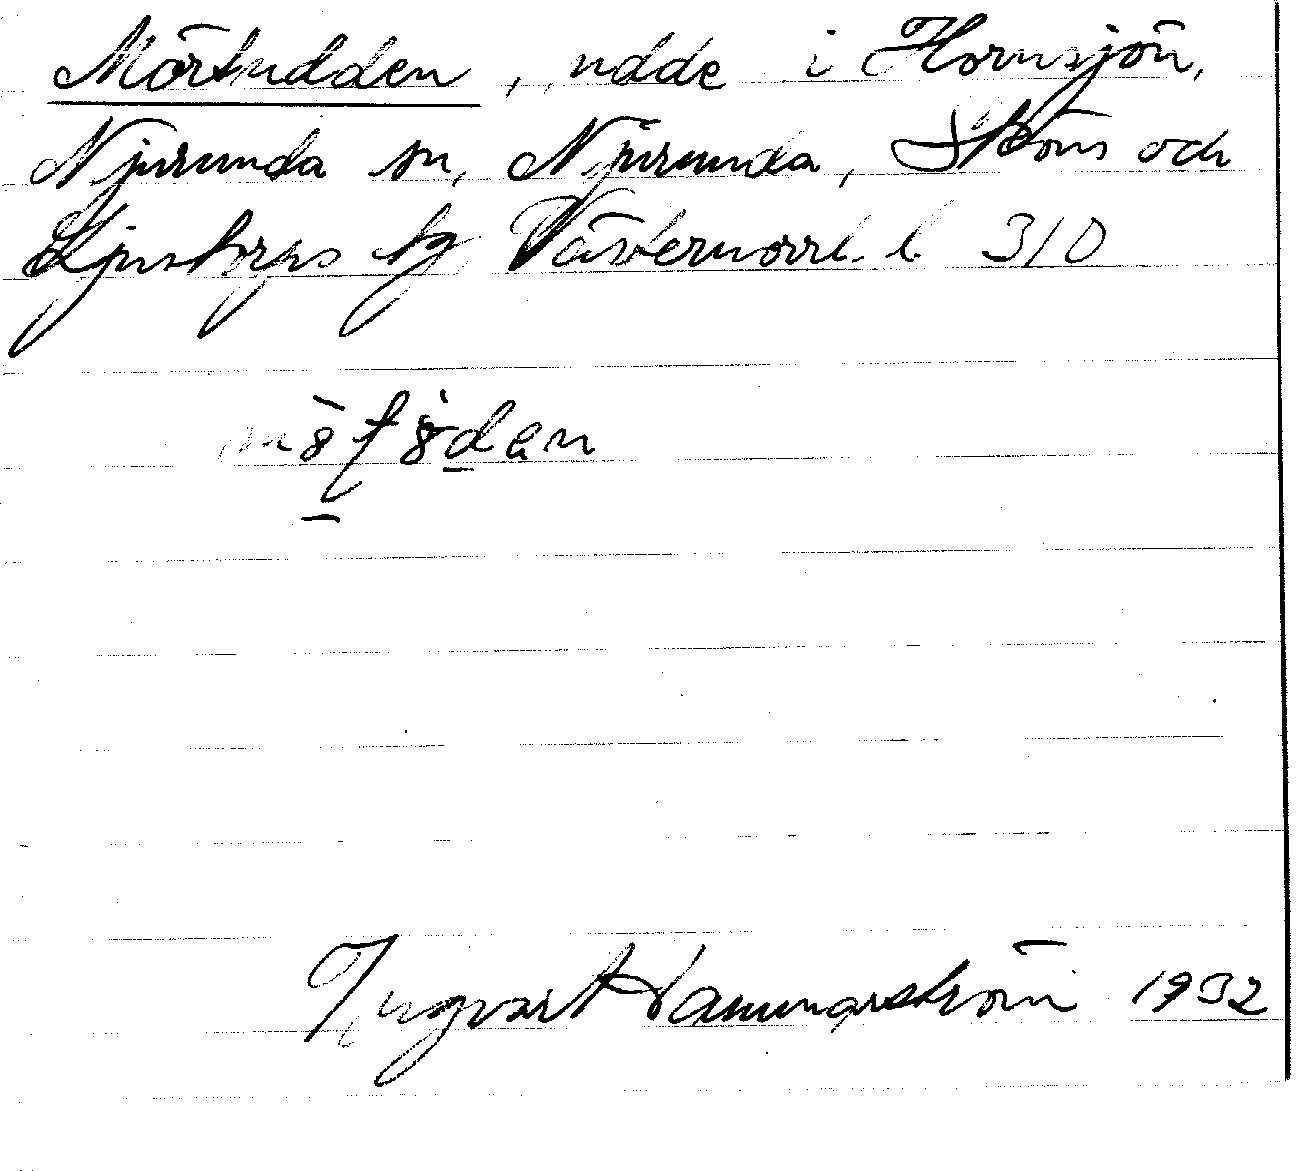 Mörtudden, udde i Hornsjön,
Njurunda sn, Njurunda, Sköns och
Ljustorps tg Västernorrl. l. 310
Ingvart Hammarström 1932